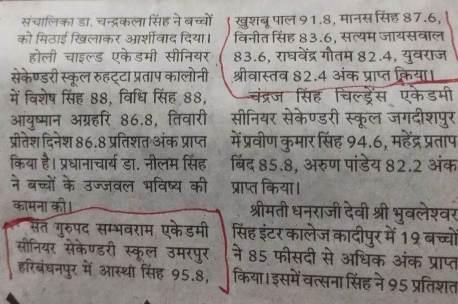 संचालिका डा. चन्द्रकला सिंह ने बच्चों
को मिठाई खिलाकर आर्शीवाद दिया।
होली चाइल्ड एकेडमी सीनियर
सेकेण्डरी स्कूल रुहट्टा प्रताप कालोनी
में विशेष सिंह 88, विधि सिंह 88,
आयुष्मान अग्रहरि 86.8, तिवारी
प्रीतेश दिनेश 86.8 प्रतिशत अंक प्राप्त
किया है। प्रधानाचार्य डा. नीलम सिंह
ने बच्चों के उज्जवल भविष्य की
कामना की।
संत गुरुपद सम्भवराम एकेडमी
सीनियर सेकेण्डरी स्कूल उमरपुर
हरिबंधनपुर में आस्थी सिंह 95.8,
खुशबू पाल 91.8, मानस सिंह 87.6,
विनीत सिंह 83.6, सत्यम जायसवाल
83.6, राघवेंद्र गौतम 82.4, युवराज
श्रीवास्तव 82.4 अंक प्राप्त किया।
चंद्रज सिंह चिल्ड्रेंस एकेडमी
सीनियर सेकेण्डरी स्कूल जगदीशपुर
में प्रवीण कुमार सिंह 94.6, महेंद्र प्रताप
बिंद 85.8, अरुण पांडेय 82.2 अंक
प्राप्त किया।
श्रीमती धनराजी देवी श्री भुवलेश्वर
सिंह इंटर कालेज कादीपुर में 19 बच्चों
ने 85 फीसदी से अधिक अंक प्राप्त
किया। इसमें वत्सना सिंह ने 95 प्रतिशत